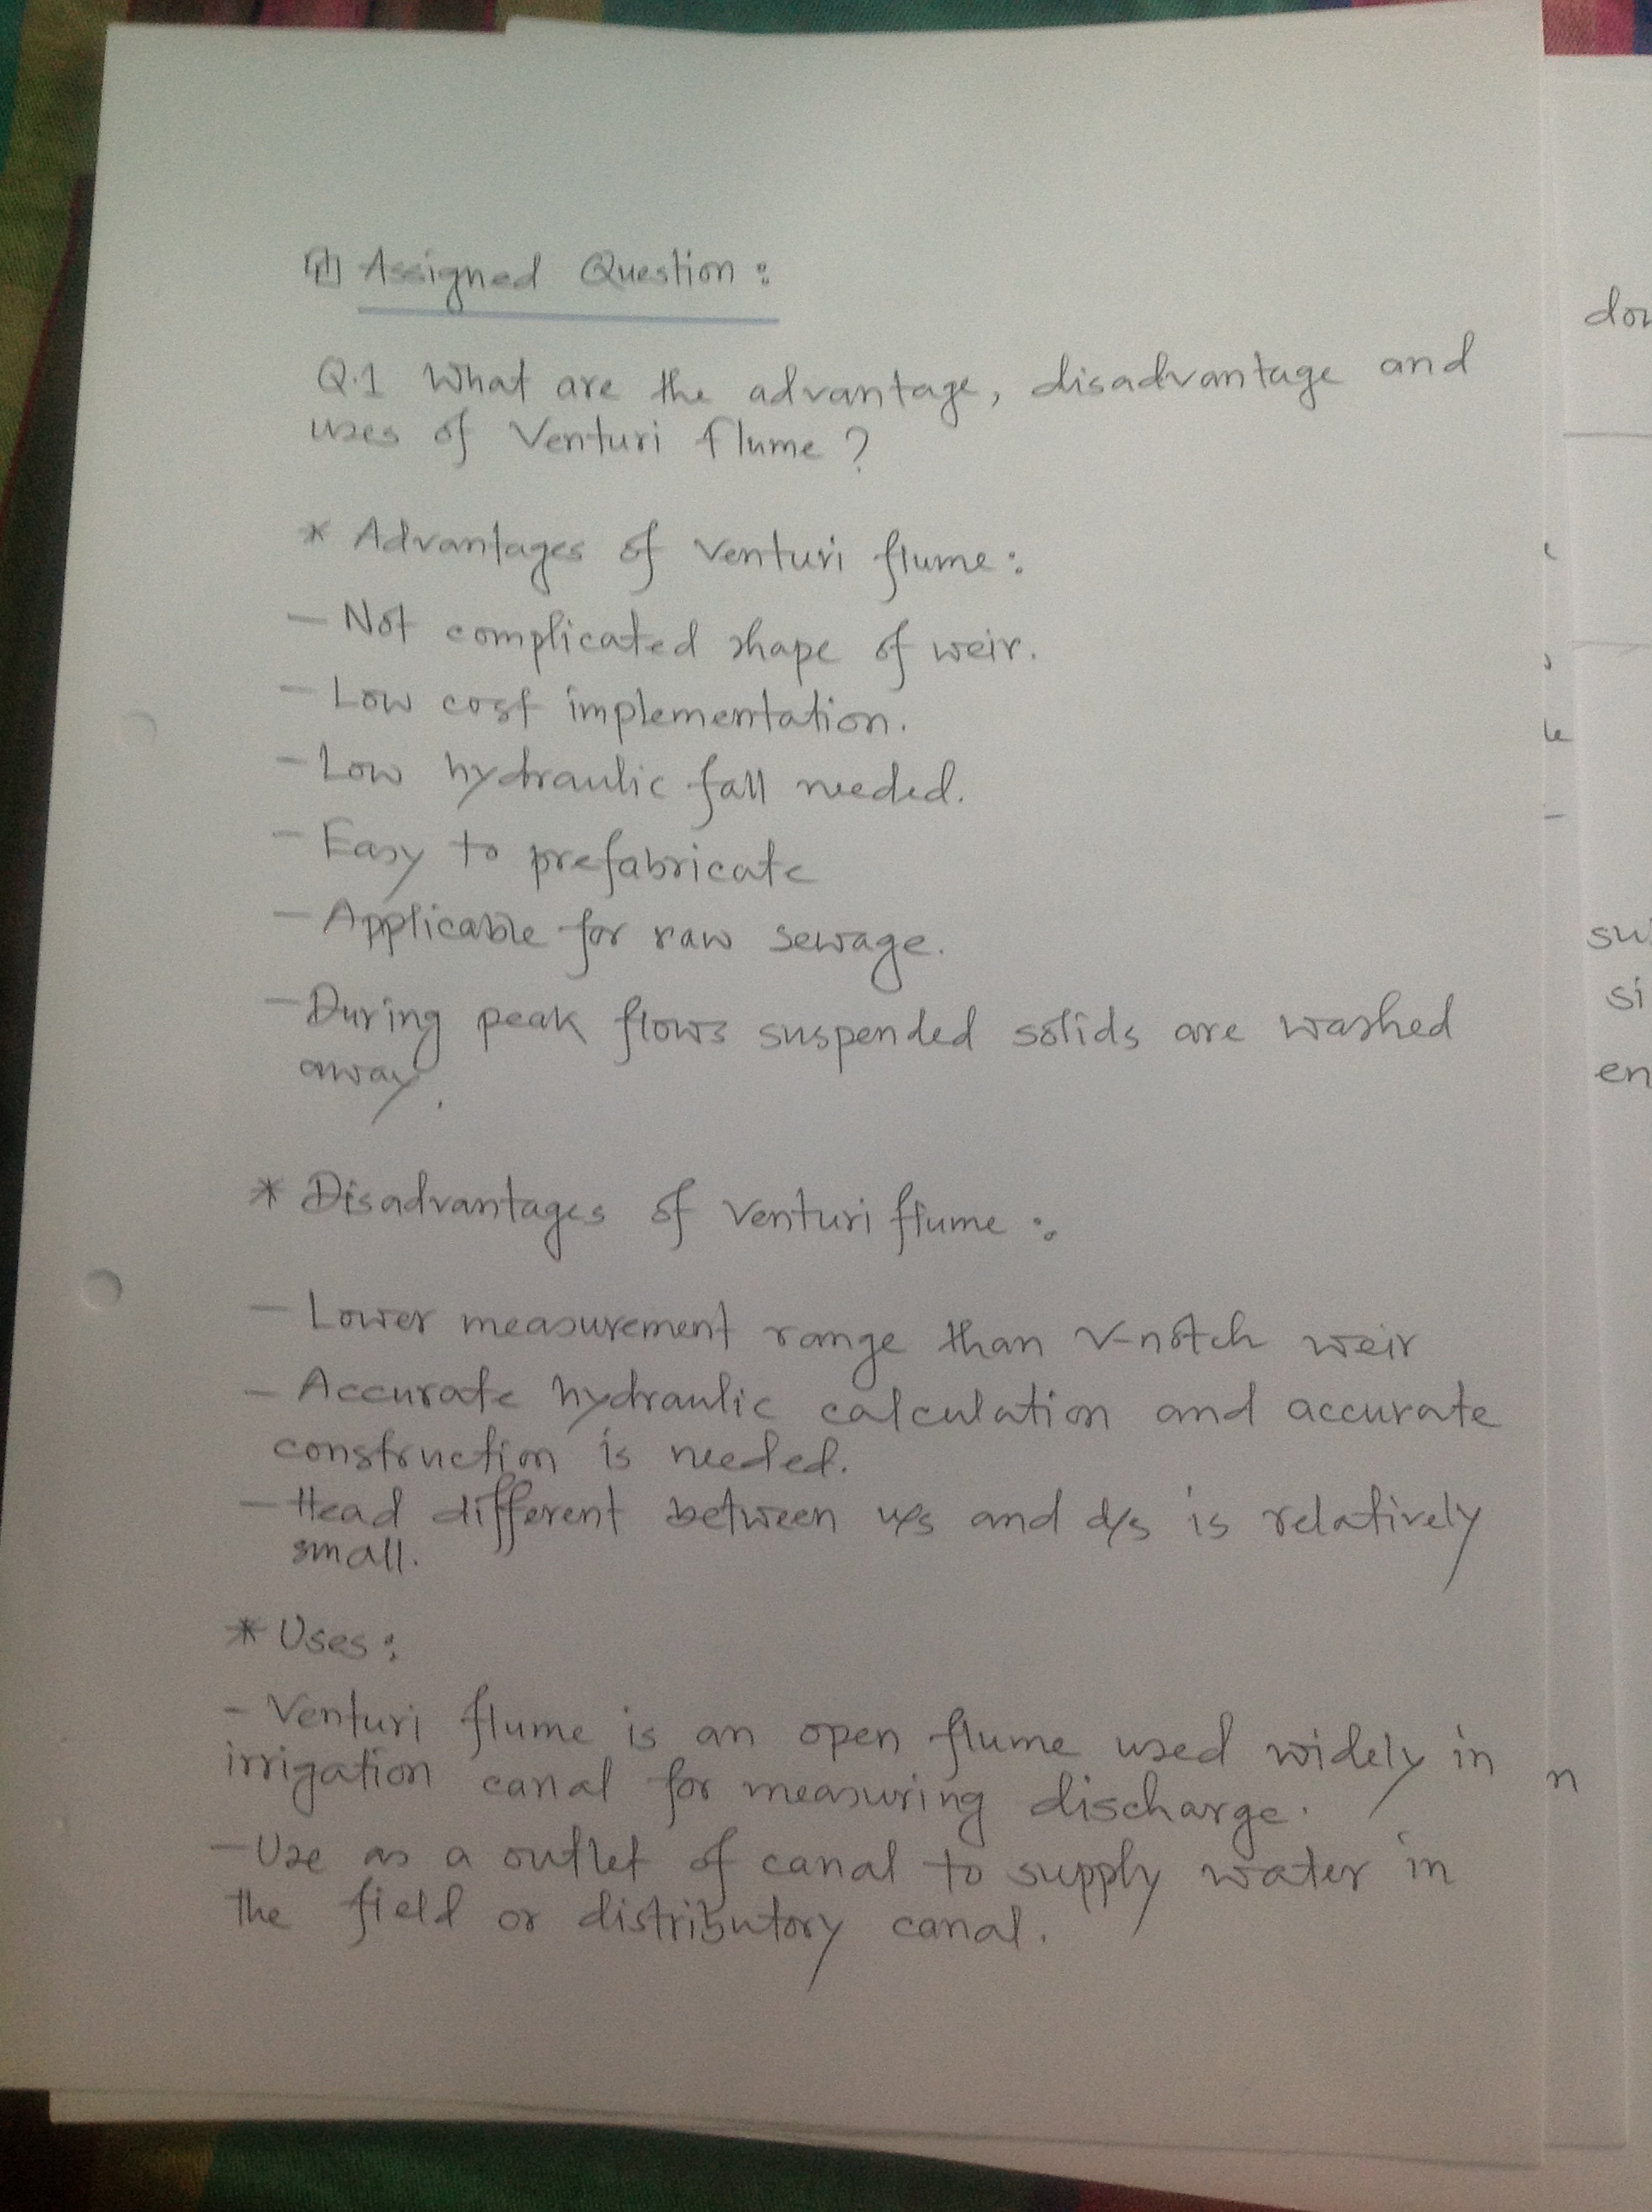 Assigned Question:
Q.1 What are the advantage, disadvantage and
uses of Venturi flume?
* Advantages of Venturi flume:
- Not complicated shape of weir.
- Low cost implementation.
- Low hydraulic fall needed.
- Easy to prefabricate
- Applicable for raw sewage.
- During peak flows suspended solids are washed
away.
* Disadvantages of Venturi flume:
- Lower measurement range than V-notch weir
- Accurate hydraulic calculation and accurate
construction is needed.
- Head different between u/s and d/s is relatively
small.
* Uses:
- Venturi flume is an open flume used widely in
irrigation canal for measuring discharge.
- Use as a outlet of canal to supply water in
the field or distributory canal.
si
en
n